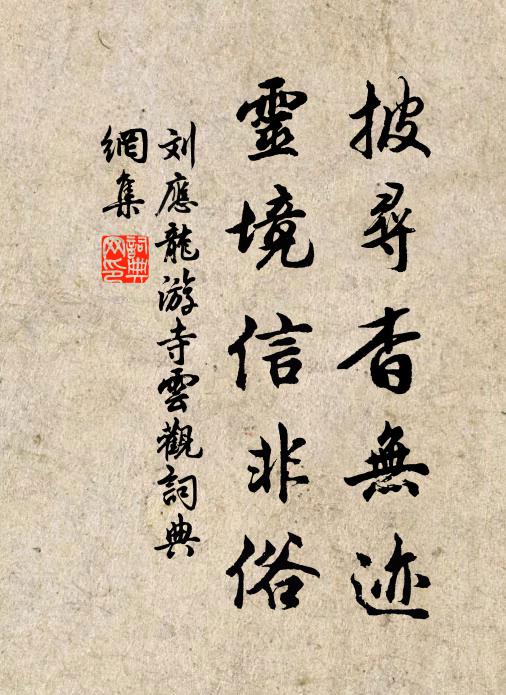 披尋杳無迹
靈境信非俗
刘應龍游寺雲觀詞典
網集
詞典
网印